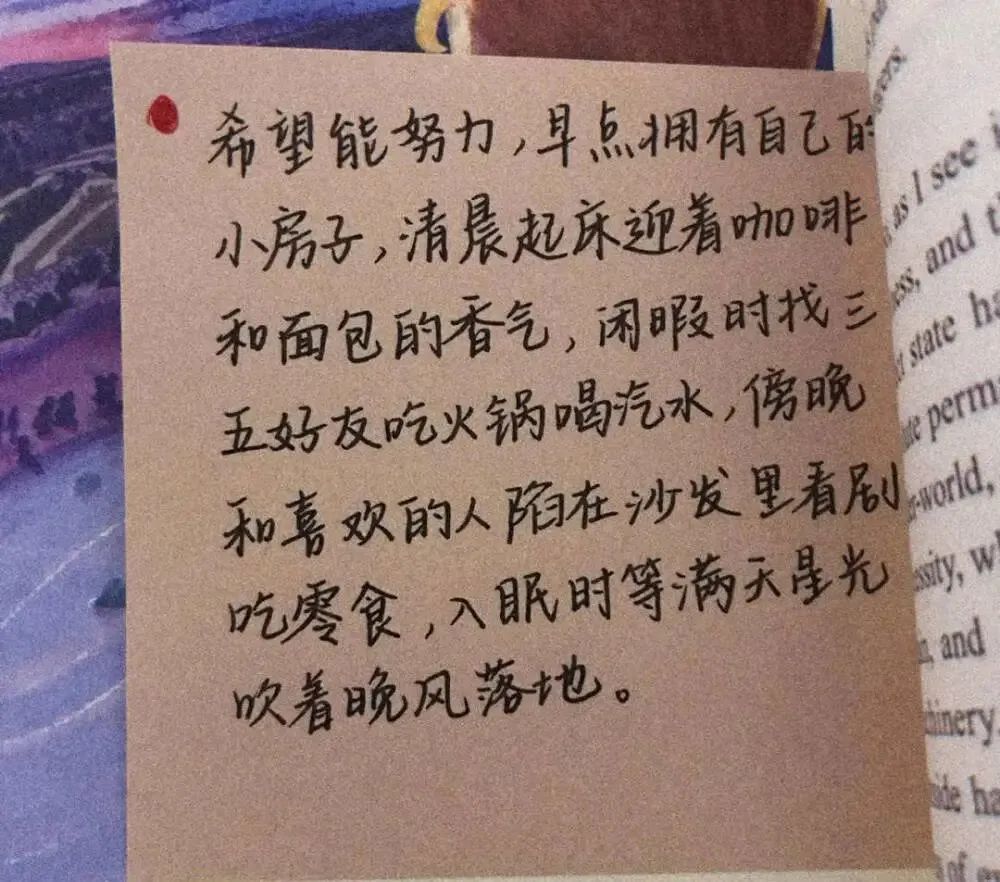 希望能努力,早点拥有自己的
小房子,清晨起床迎着咖啡
和面包的香气,闲暇时找三
五好友吃火锅喝汽水,傍晚
和喜欢的人陷在沙发里看剧
吃零食,入眠时等满天星光
吹着晚风落地。
as I see
and
state
perm
world,
and